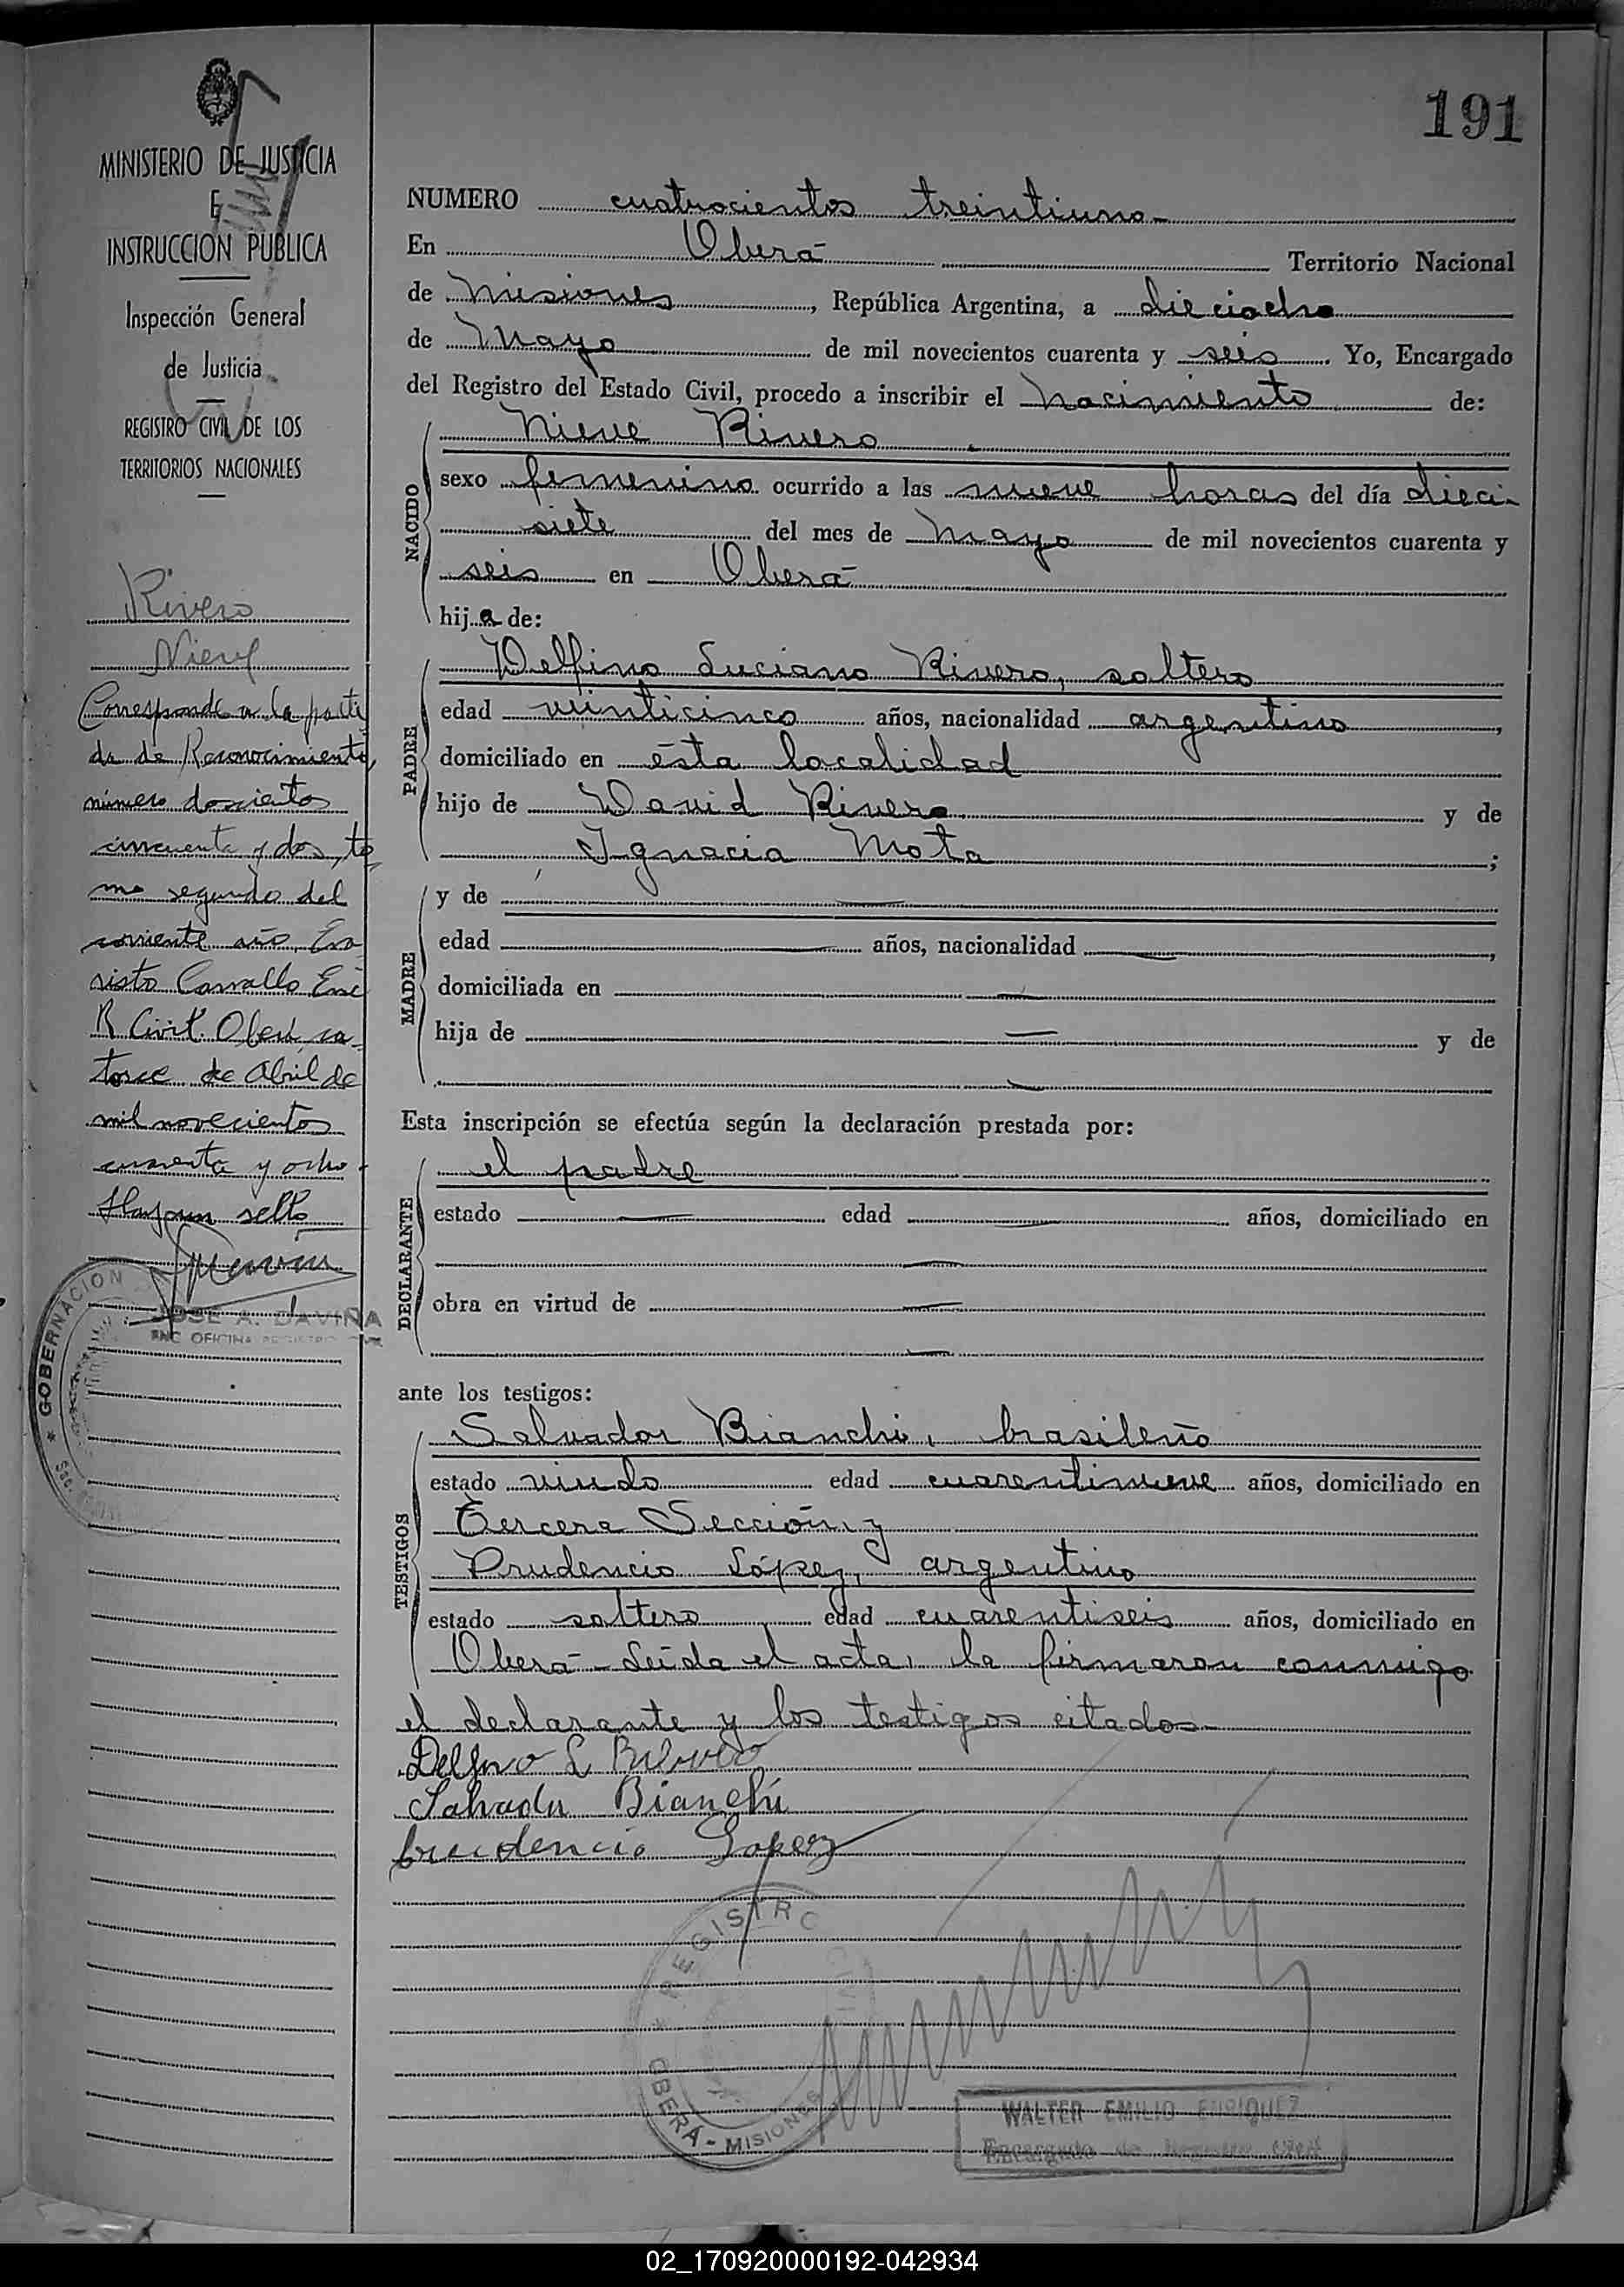 191
MINISTERIO DE JUSTICIA
E
INSTRUCCION PUBLICA
Inspección General
de Justicia
REGISTRO CIVIL DE LOS
TERRITORIOS NACIONALES
Rivero
Nieve
Corresponde a la parti
da de Reconocimiento,
número doscientos
cincuenta y dos, to
mo segundo del
corriente año, Eva
risto Carvallo Enc
R Civil. Oberá, ca-
torce de Abril de
mil novecientos
cuarenta y ocho.
Hay un sello
JOSE A. DAVIÑA
ENC OFICINA REGISTRO
GOBERNACION
NUMERO cuatrocientos treintiuno
En Oberá Territorio Nacional
de Misiones, República Argentina, a dieciocho
de Mayo de mil novecientos cuarenta y seis. Yo, Encargado
del Registro del Estado Civil, procedo a inscribir el nacimiento de:
NACIDO
Nieve Rivero
sexo femenino ocurrido a las nueve horas del día dieci-
siete del mes de Mayo de mil novecientos cuarenta y
seis en Oberá
hija de:
PADRE
Delfino Luciano Rivero, soltero
edad veinticinco años, nacionalidad argentino,
domiciliado en ésta localidad
hijo de David Rivero y de
Ignacia Mota;
MADRE
y de —
edad — años, nacionalidad —,
domiciliada en —
hija de — y de
—
Esta inscripción se efectúa según la declaración prestada por:
DECLARANTE
el padre
estado — edad — años, domiciliado en
—
obra en virtud de —
—
ante los testigos:
TESTIGOS
Salvador Bianchi, brasileño
estado viudo edad cuarentinueve años, domiciliado en
Tercera Sección, y
Prudencio López, argentino
estado soltero edad cuarentiseis años, domiciliado en
Oberá - Leída el acta, la firmaron conmigo
el declarante y los testigos citados
Delfino L Rivero
Salvador Bianchi
Prudencio Lopez
REGISTRO CIVIL
OBERA - MISIONES
WALTER EMILIO ENRIQUEZ
Encargado de Registro Civil
02_170920000192-042934